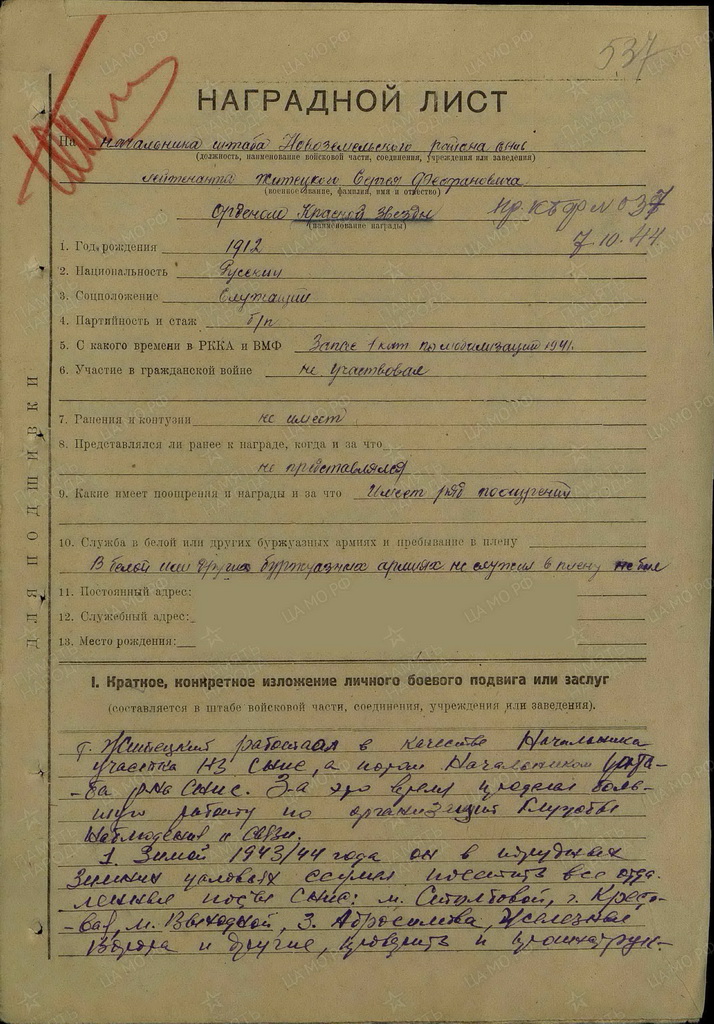 537
НАГРАДНОЙ ЛИСТ
На начальника штаба Новоземельского района СНиС
(должность, наименование войсковой части, соединения, учреждения или заведения)
лейтенанта Житецкого Сергея Феофановича
(военное звание, фамилия, имя и отчество)
Орденом Красной звезды
(наименование награды)
Пр. КБФ № 037
7.10.44
1. Год рождения 1912
2. Национальность Русский
3. Соцположение Служащий
4. Партийность и стаж б/п
5. С какого времени в РККА и ВМФ Запас 1 кат по мобилизации 1941.
6. Участие в гражданской войне не участвовал
7. Ранения и контузии не имеет
8. Представлялся ли ранее к награде, когда и за что
не представлялся
9. Какие имеет поощрения и награды и за что Имеет ряд поощрений
10. Служба в белой или других буржуазных армиях и пребывание в плену
В белой или других буржуазных армиях не служил в плену не был
11. Постоянный адрес:
12. Служебный адрес:
13. Место рождения:
ДЛЯ ПОДШИВКИ
I. Краткое, конкретное изложение личного боевого подвига или заслуг
(составляется в штабе войсковой части, соединения, учреждения или заведения).
т. Житецкий работал в качестве Начальника
участка НЗ СНиС, а потом Начальником шта-
-ба р-на СНиС. За это время проделал боль-
шую работу по организации Службы
Наблюдения и связи.
1. Зимой 1943/44 года он в трудных
Зимних условиях сумел посетить все отда-
ленные посты СНиС: м. Столбовой, г. Кресто-
-вая, м. Выходной, З. Абросимова, Железные
Ворота и другие, проверить и проинструк-